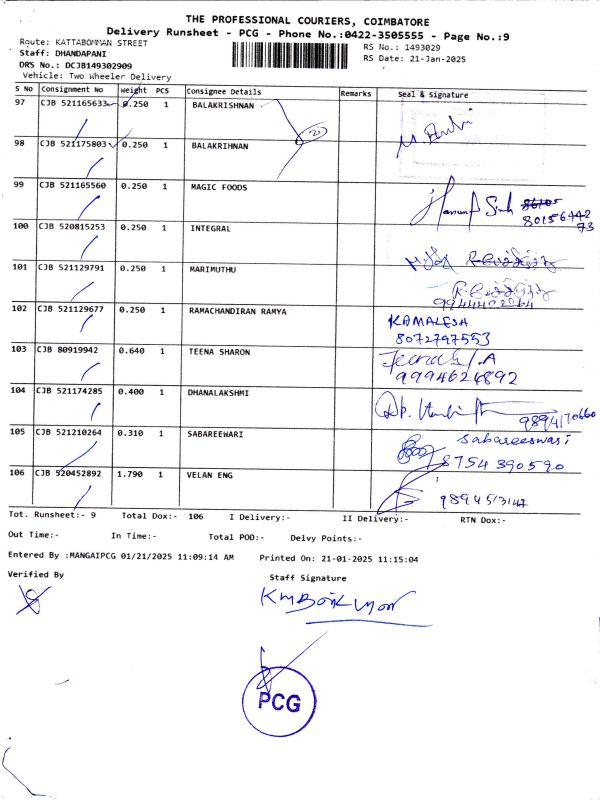 THE PROFESSIONAL COURIERS, COIMBATORE
Delivery Runsheet - PCG - Phone No.:0422-3505555 - Page No.:9
Route: KATTABOMMAN STREET
RS No.: 1493029
Staff: DHANDAPANI
RS Date: 21-Jan-2025
DRS No.: DCJB149302909
Vehicle: Two Wheeler Delivery
S No Consignment No Weight PCS Consignee Details Remarks Seal & Signature
97 CJB 521165633 0.250 1 BALAKRISHNAN
98 CJB 521175803 0.250 1 BALAKRIHNAN
99 CJB 521165560 0.250 1 MAGIC FOODS
8015644273
100 CJB 520815253 0.250 1 INTEGRAL
101 CJB 521129791 0.250 1 MARIMUTHU
102 CJB 521129677 0.250 1 RAMACHANDIRAN RAMYA KAMALESH
8072797553
103 CJB 80919942 0.640 1 TEENA SHARON
9994624892
104 CJB 521174285 0.400 1 DHANALAKSHMI
9894170660
105 CJB 521210264 0.310 1 SABAREEWARI Sabareeswari
8754390590
106 CJB 520452892 1.790 1 VELAN ENG
Tot. Runsheet:- 9 Total Dox:- 106 I Delivery:- II Delivery:- RTN Dox:-
Out Time:- In Time:- Total POD:- Delvy Points:-
Entered By :MANGAIPCG 01/21/2025 11:09:14 AM Printed On: 21-01-2025 11:15:04
Verified By Staff Signature
PCG